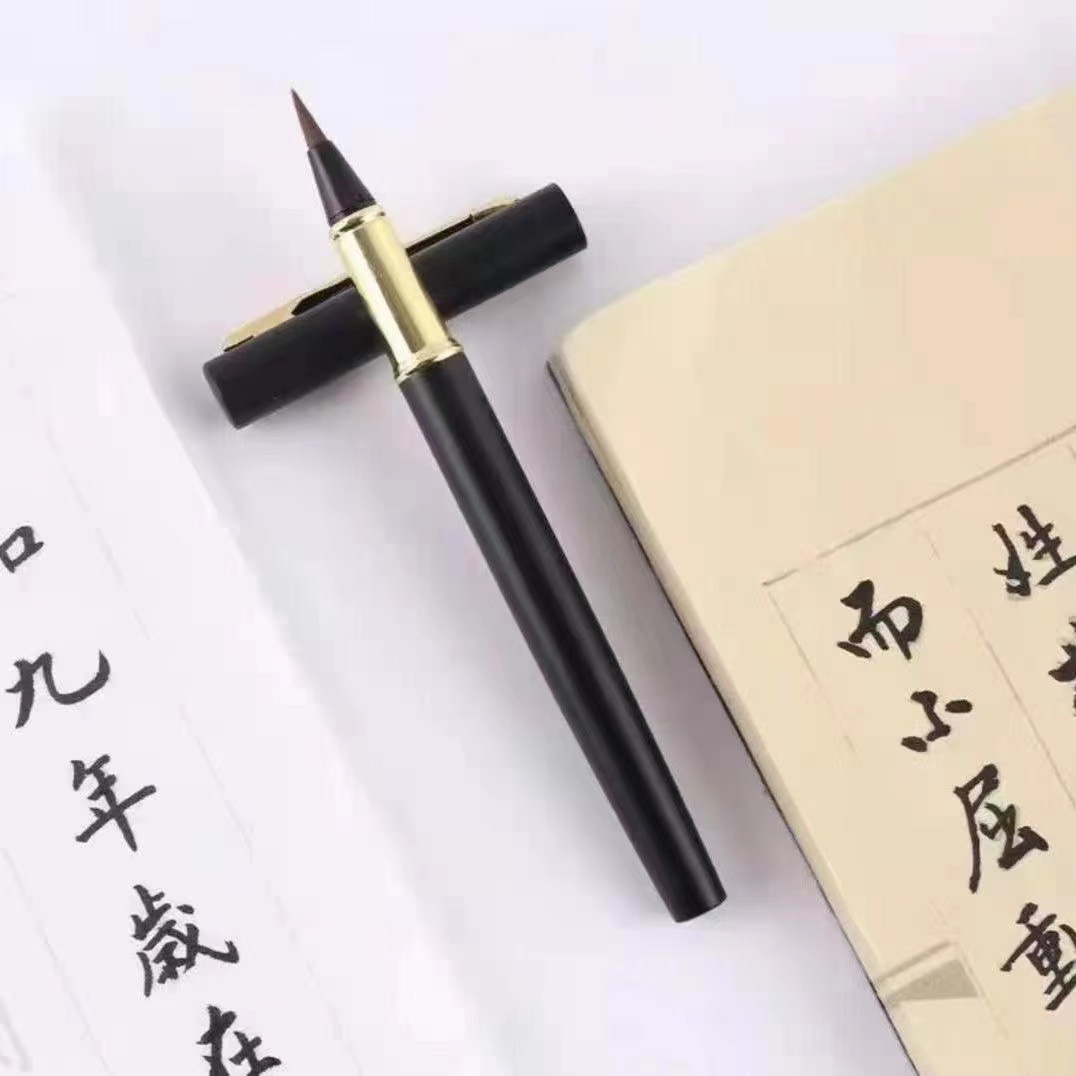 姓
而不屈重
口九年歲在